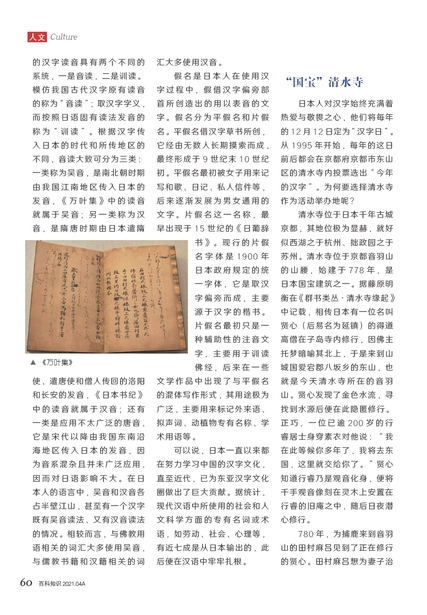 人文 Culture
的汉字读音具有两个不同的
系统，一是音读，二是训读。
模仿我国古代汉字原有读音
的称为“音读”；取汉字字义，
而按照日语固有读法发音的
称为“训读”。根据汉字传
入日本的时代和所传地区的
不同，音读大致可分为三类：
一类称为吴音，是南北朝时期
由我国江南地区传入日本的
发音，《万叶集》中的读音
就属于吴音；另一类称为汉
音，是隋唐时期由日本遣隋
▲ 《万叶集》
使、遣唐使和僧人传回的洛阳
和长安的发音，《日本书纪》
中的读音就属于汉音；还有
一类是应用不太广泛的唐音，
它是宋代以降由我国东南沿
海地区传入日本的发音，因
为音系混杂且并未广泛应用，
因而对日语影响不大。在日
本人的语言中，吴音和汉音各
占半壁江山，甚至有一个汉字
既有吴音读法、又有汉音读法
的情况。相较而言，与佛教用
语相关的词汇大多使用吴音，
与儒教书籍和汉籍相关的词
汇大多使用汉音。
假名是日本人在使用汉
字过程中，假借汉字偏旁部
首所创造出的用以表音的文
字。假名分为平假名和片假
名。平假名借汉字草书所创，
它经由无数人长期摸索而成，
最终形成于 9 世纪末 10 世纪
初。平假名最初被女子用来记
写和歌、日记、私人信件等，
后来逐渐发展为男女通用的
文字。片假名这一名称，最
早出现于 15 世纪的《日葡辞
书》。现行的片假
名字体是 1900 年
日本政府规定的统
一字体，它是取汉
字偏旁而成，主要
源于汉字的楷书。
片假名最初只是一
种辅助性的注音文
字，主要用于训读
佛经，后来在一些
文学作品中出现了与平假名
的混体写作形式，其用途极为
广泛，主要用来标记外来语、
拟声词、动植物专有名称、学
术用语等。
可以说，日本一直以来都
在努力学习中国的汉字文化，
直至近代，已为东亚汉字文化
圈做出了巨大贡献。据统计，
现代汉语中所使用的社会和人
文科学方面的专有名词或术
语，如劳动、社会、心理等，
有近七成是从日本输出的，此
后便在汉语中牢牢扎根。
“国宝”清水寺
日本人对汉字始终充满着
热爱与敬畏之心，他们将每年
的 12 月 12 日定为“汉字日”。
从 1995 年开始，每年的这日
前后都会在京都府京都市东山
区的清水寺内投票选出“今年
的汉字”。为何要选择清水寺
作为活动举办地呢？
清水寺位于日本千年古城
京都，其地位极为显赫，就好
似西湖之于杭州、拙政园之于
苏州。清水寺位于京都音羽山
的山腰，始建于 778 年，是
日本国宝建筑之一。据藤原明
衡在《群书类丛·清水寺缘起》
中记载，相传日本有一位名叫
贤心（后易名为延镇）的得道
高僧在子岛寺内修行，因佛主
托梦暗喻其北上，于是来到山
城国爱宕郡八坂乡的东山，也
就是今天清水寺所在的音羽
山。贤心发现了金色水流，寻
找到水源后便在此隐匿修行。
正巧，一位已逾 200 岁的行
睿居士身穿素衣对他说：“我
在此等候你多年了，我将去东
国，这里就交给你了。”贤心
知道行睿乃是观音化身，便将
千手观音像刻在灵木上安置在
行睿的旧庵之中，随后日夜潜
心修行。
780 年，为捕鹿来到音羽
山的田村麻吕见到了正在修行
的贤心。田村麻吕想为妻子治
60 百科知识 2021.04A